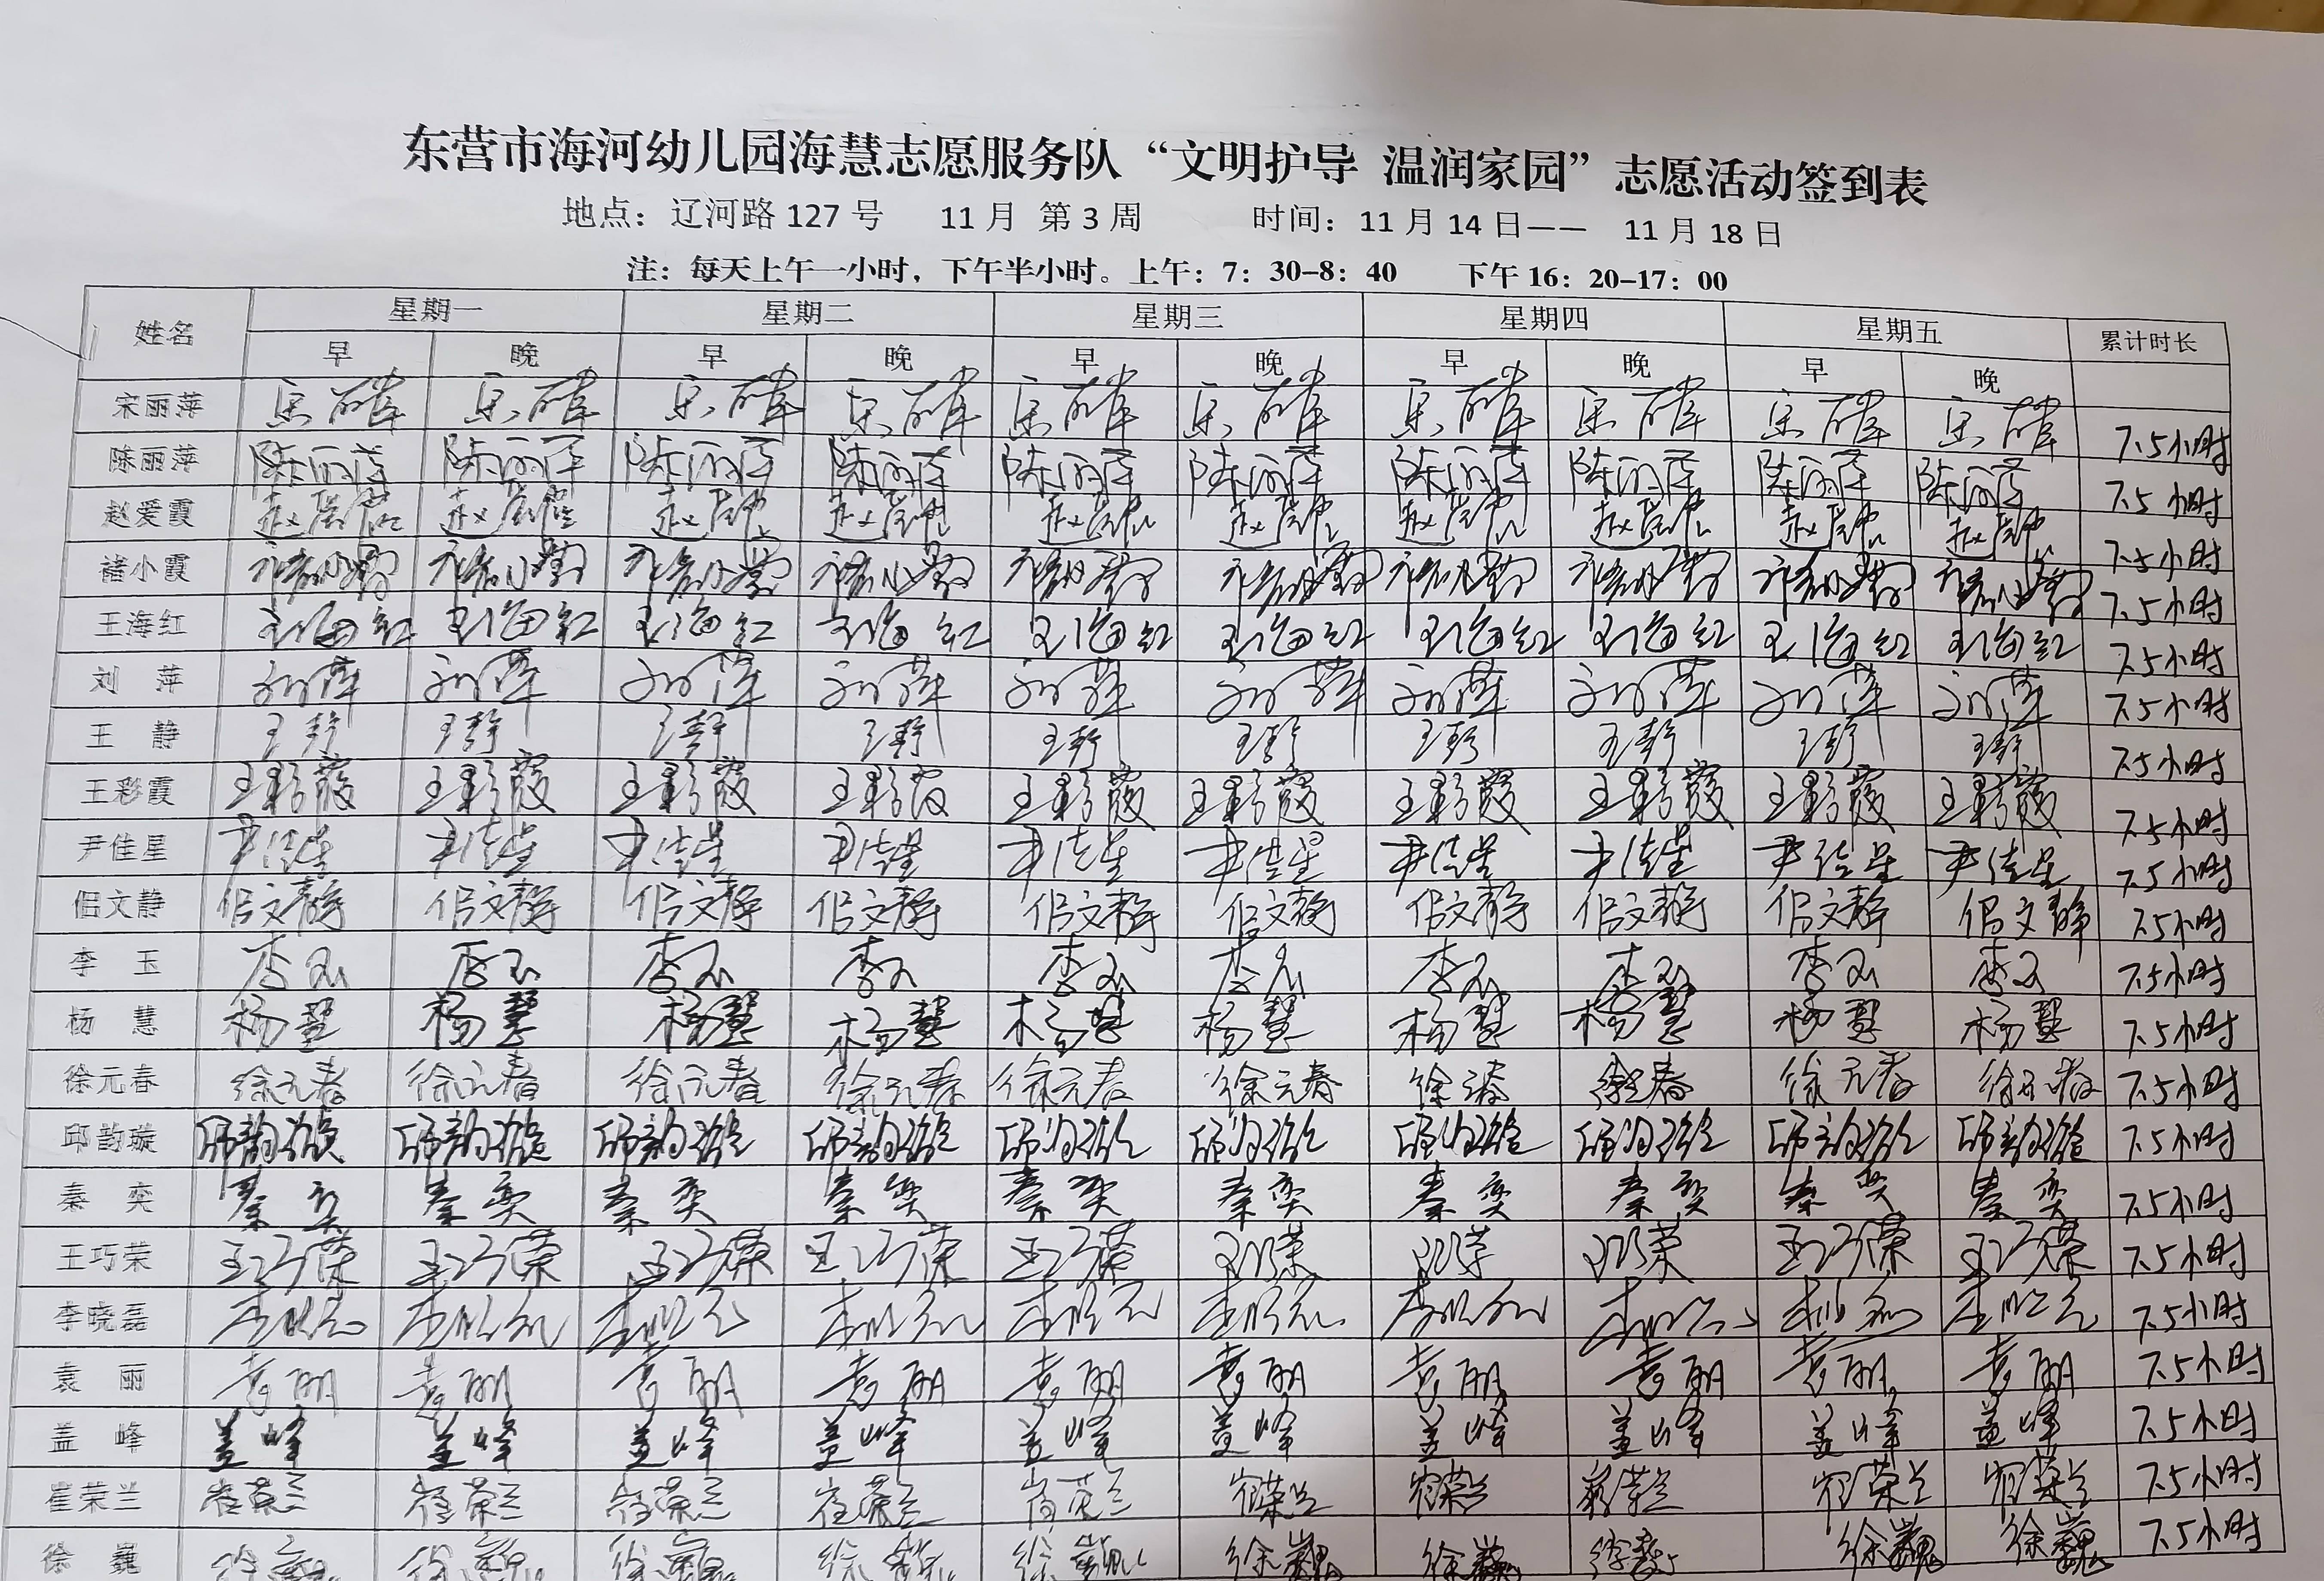 东营市海河幼儿园海慧志愿服务队“文明护导 温润家园”志愿活动签到表
地点：辽河路 127 号 11 月 第 3 周 时间：11 月 14 日—— 11 月 18 日
注：每天上午一小时，下午半小时。上午：7：30-8：40 下午 16：20-17：00
姓名 星期一 星期二 星期三 星期四 星期五 累计时长
早 晚 早 晚 早 晚 早 晚 早 晚
宋丽萍 宋丽萍 宋丽萍 宋丽萍 宋丽萍 宋丽萍 宋丽萍 宋丽萍 宋丽萍 宋丽萍 宋丽萍 7.5小时
陈丽萍 陈丽萍 陈丽萍 陈丽萍 陈丽萍 陈丽萍 陈丽萍 陈丽萍 陈丽萍 陈丽萍 陈丽萍 7.5小时
赵爱霞 赵爱霞 赵爱霞 赵爱霞 赵爱霞 赵爱霞 赵爱霞 赵爱霞 赵爱霞 赵爱霞 赵爱霞 7.5小时
褚小霞 褚小霞 褚小霞 褚小霞 褚小霞 褚小霞 褚小霞 褚小霞 褚小霞 褚小霞 褚小霞 7.5小时
王海红 王海红 王海红 王海红 王海红 王海红 王海红 王海红 王海红 王海红 王海红 7.5小时
刘 萍 刘萍 刘萍 刘萍 刘萍 刘萍 刘萍 刘萍 刘萍 刘萍 刘萍 7.5小时
王 静 王静 王静 王静 王静 王静 王静 王静 王静 王静 王静 7.5小时
王彩霞 王彩霞 王彩霞 王彩霞 王彩霞 王彩霞 王彩霞 王彩霞 王彩霞 王彩霞 王彩霞 7.5小时
尹佳星 尹佳星 尹佳星 尹佳星 尹佳星 尹佳星 尹佳星 尹佳星 尹佳星 尹佳星 尹佳星 7.5小时
佀文静 佀文静 佀文静 佀文静 佀文静 佀文静 佀文静 佀文静 佀文静 佀文静 佀文静 7.5小时
李 玉 李玉 李玉 李玉 李玉 李玉 李玉 李玉 李玉 李玉 李玉 7.5小时
杨 慧 杨慧 杨慧 杨慧 杨慧 杨慧 杨慧 杨慧 杨慧 杨慧 杨慧 7.5小时
徐元春 徐元春 徐元春 徐元春 徐元春 徐元春 徐元春 徐元春 徐元春 徐元春 徐元春 7.5小时
邱韵璇 邱韵璇 邱韵璇 邱韵璇 邱韵璇 邱韵璇 邱韵璇 邱韵璇 邱韵璇 邱韵璇 邱韵璇 7.5小时
秦 奕 秦奕 秦奕 秦奕 秦奕 秦奕 秦奕 秦奕 秦奕 秦奕 秦奕 7.5小时
王巧荣 王巧荣 王巧荣 王巧荣 王巧荣 王巧荣 王巧荣 王巧荣 王巧荣 王巧荣 王巧荣 7.5小时
李晓磊 李晓磊 李晓磊 李晓磊 李晓磊 李晓磊 李晓磊 李晓磊 李晓磊 李晓磊 李晓磊 7.5小时
袁 丽 袁丽 袁丽 袁丽 袁丽 袁丽 袁丽 袁丽 袁丽 袁丽 袁丽 7.5小时
盖 峰 盖峰 盖峰 盖峰 盖峰 盖峰 盖峰 盖峰 盖峰 盖峰 盖峰 7.5小时
崔荣兰 崔荣兰 崔荣兰 崔荣兰 崔荣兰 崔荣兰 崔荣兰 崔荣兰 崔荣兰 崔荣兰 崔荣兰 7.5小时
徐 巍 徐巍 徐巍 徐巍 徐巍 徐巍 徐巍 徐巍 徐巍 徐巍 徐巍 7.5小时